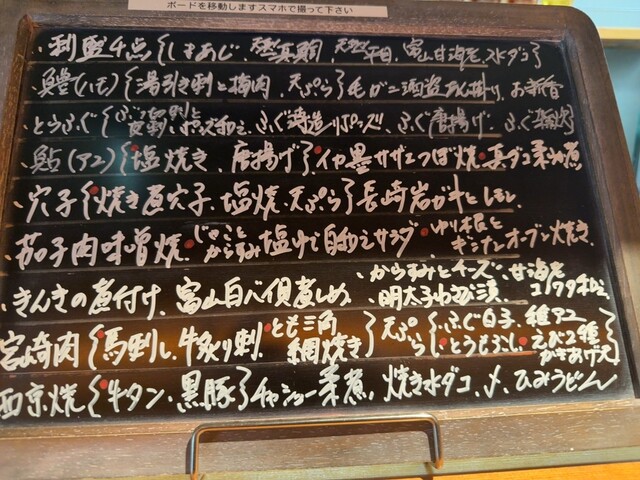 ボードを移動しますスマホで撮って下さい
・刺盛4点{しまあじ、天然真鯛、天然平目、富山甘海老、水ダコ}
鱧(ハモ){湯引き刺と梅肉、天ぷら}毛ガニ酒盗あん掛け、お新香
とらふぐ{ぶつ刺と皮刺、ポン酢和え、ふぐ鋳造りポンズ、ふぐ唐揚げ、ふぐ雑炊
鮎(アユ){塩焼き、唐揚げ}イカ墨サザエつぼ焼・真ダコ柔か煮
穴子{焼き煮穴子、塩焼・天ぷら}長崎岩ガキとレモン
茄子肉味噌焼・じゃことからすみ塩ゆで自和えサラダ・ゆり根とギンナンオーブン焼き、
・きんきの煮付け、富山白バイ貝煮しめ、・からすみとチーズ、甘海老
・明太子わさび漬、コノワタ和え、
宮崎肉{馬刺し、牛炙り刺・とも三角網焼き}天ぷら{・ふぐ白子、稚アユ・とうもろこし・えび2種かきあげ天}
西京焼{牛タン、黒豚}チャーシュー柔煮、焼き水ダコ、〆、ひみうどん